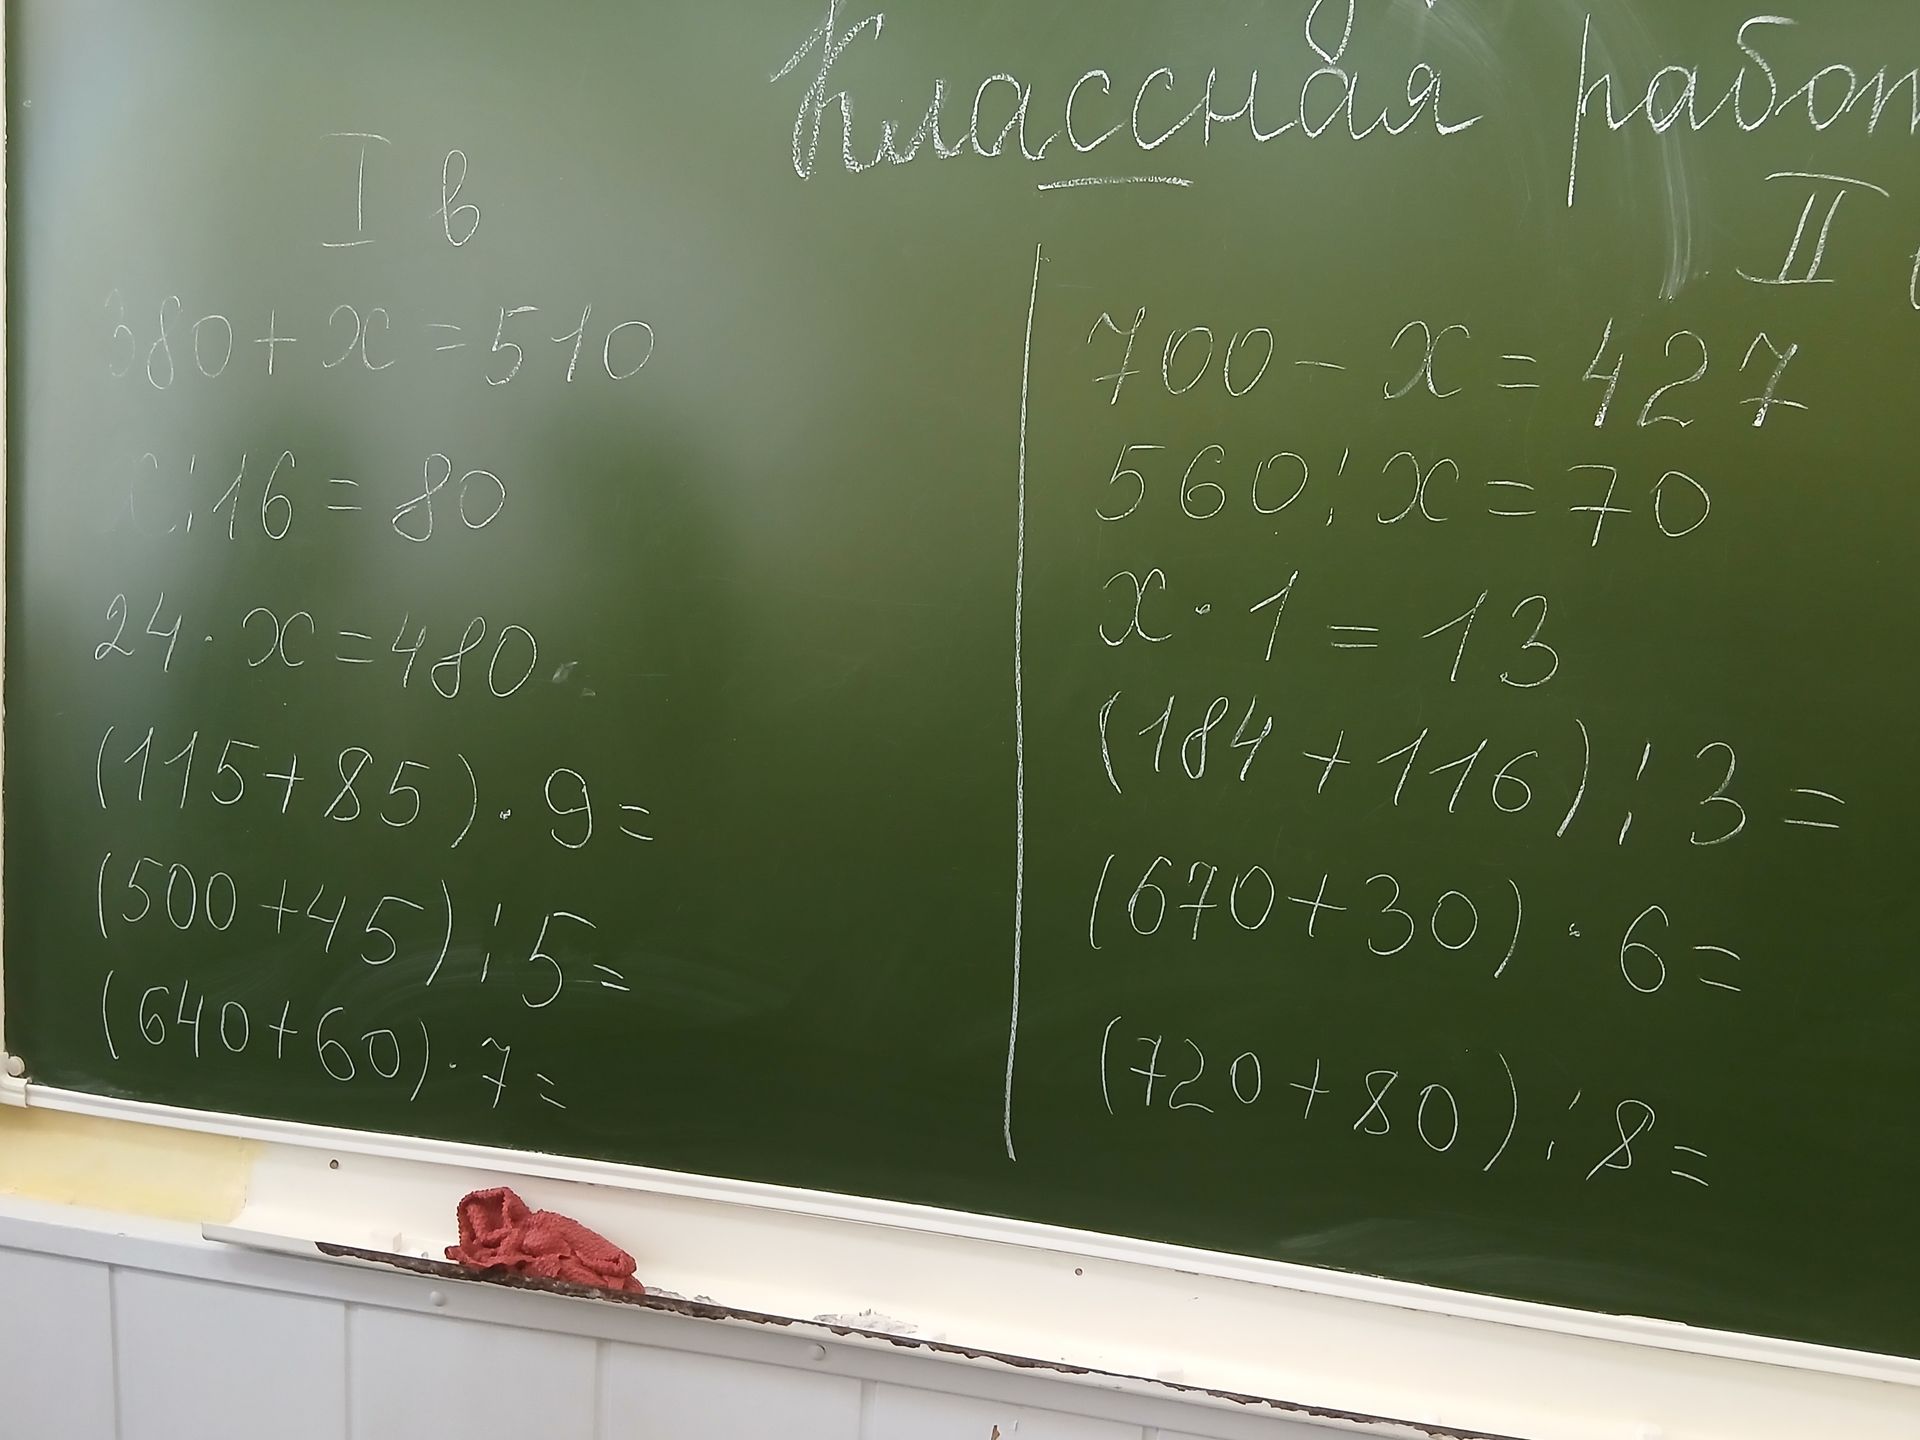 Классная
I в
380 + x = 510
x : 16 = 80
24 · x = 480
(115 + 85) · 9 =
(500 + 45) : 5 =
(640 + 60) · 7 =
II
700 - x = 427
560 : x = 70
x · 1 = 13
(184 + 116) : 3 =
(670 + 30) · 6 =
(720 + 80) : 8 =